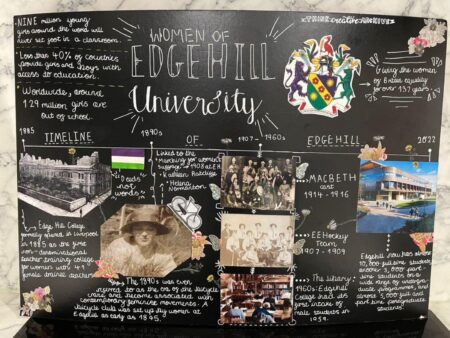 - NINE million young
girls around the world will
never set foot in a classroom.
- Less than 40% of countries
provide girls and boys with
access to education.
- Worldwide, around
129 million girls are
out of school.
WOMEN OF
EDGEHILL
University
Giving the women
of
equality
for over 137 years
1885
1890s
1907 - 1960s
2022
TIMELINE
OF
EDGEHILL
Linked to the
'Marching for women's
suffrage' in 1908 at EH.
Kathleen
Helena
Normanton
"Deeds
not
words"
MACBETH
cast
1914 - 1916
EH Hockey
Team
1907 - 1909
The library
1960s: Edgehill
College had its
first intake of
male students in
1959.
Edge Hill College
formerly opened in Liverpool
in 1885 as the first
non-denominational
teacher training college
for women with 41
teachers.
The 1890s was even
referred to as the era of the bicycle
craze and become associated with
contemporary feminist movements. A
bicycle club was set up by women at
Edgehill as early as 1895.
Edgehill now has almost
10,000 full time students,
another 3,000 part
time students on a
wide range of
undergraduate
programmes, and
almost 3,000 full and
part time postgraduate
students.